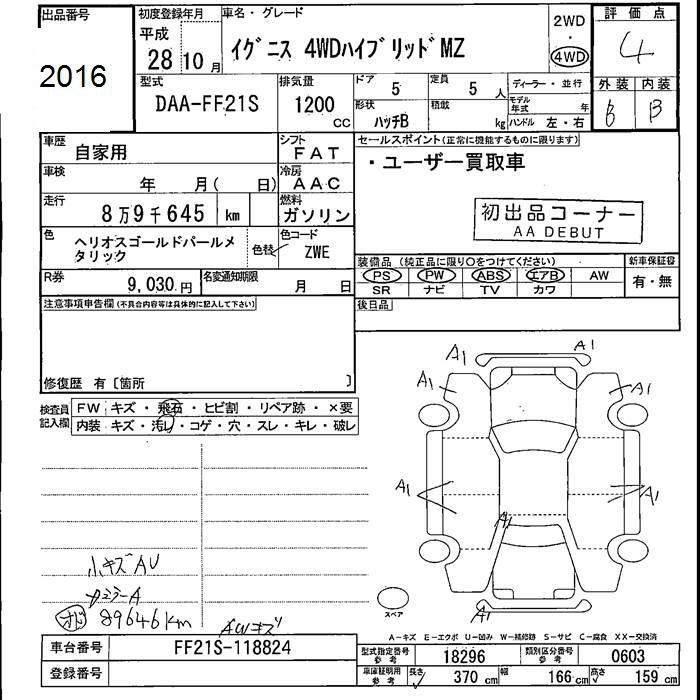 出品番号
2016
初度登録年月
平成
28年 10月
車名・グレード
イグニス 4WDハイブリッド MZ
2WD
・
4WD
評価点
4
外装 内装
B B
型式
DAA-FF21S
排気量
1200
CC
ドア
5
定員
5人
形状
ハッチB
積載
kg
ディーラー・並行
モデル年式 年
ハンドル 左・右
車歴
自家用
シフト
FAT
車検
年 月( 日)
冷房
AAC
走行
8万9千645 km
燃料
ガソリン
色
ヘリオスゴールドパールメ
タリック
色替
色コード
ZWE
R券
9,030円
名変通知期限
月 日
セールスポイント(正常に機能するものに限ります)
・ユーザー買取車
初出品コーナー
AA DEBUT
装備品(純正品に限り○をつけてください)
PS PW ABS エアB AW
SR ナビ TV カワ
新車保証書
有・無
後日品
注意事項申告欄(不具合内容等は具体的に記入して下さい)
修復歴 有〔箇所 〕
検査員
記入欄
FW キズ・飛石・ヒビ割・リペア跡・×要
内装 キズ・汚れ・コゲ・穴・スレ・キレ・破レ
A1 A1
A1 A1
A1 A1
A1
A1
小キズAU
カラーA
オド 89646km
AWキズ
スペア
A-キズ E-エクボ U-凹み W-補修跡 S-サビ C-腐食 XX-交換済
車台番号
FF21S-118824
登録番号
型式指定番号
参考
18296
類別区分番号
参考
0603
車庫証明用
参考
長さ 370cm 幅 166cm 高さ 159cm